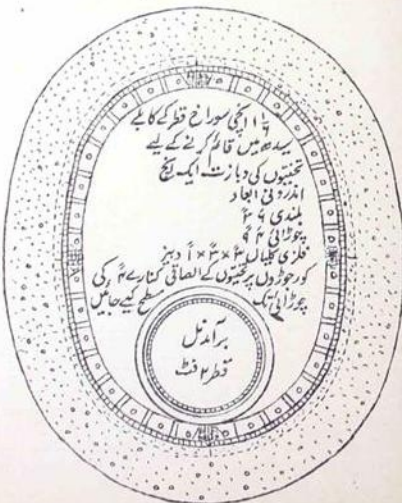 ۱ ۱/۴ انچی سوراخ قطر کے کابلے
سیدھ میں قائم کرنے کے لیے
تختیوں کی دبازت ایک انچ
اندرونی ابعاد
بلندی ۶ ً ۲ َ
چوڑائی ۴ ً ۹ َ
فلزی کلیاں ۳ ً × ۳ ً × ۱ ً دبیز
کور جوڑوں پر تختیوں کے الصاقی کنارے ۴ ً کی
چوڑائی تک مسطح کیے جائیں
برآمد نل
قطر ۲ فٹ